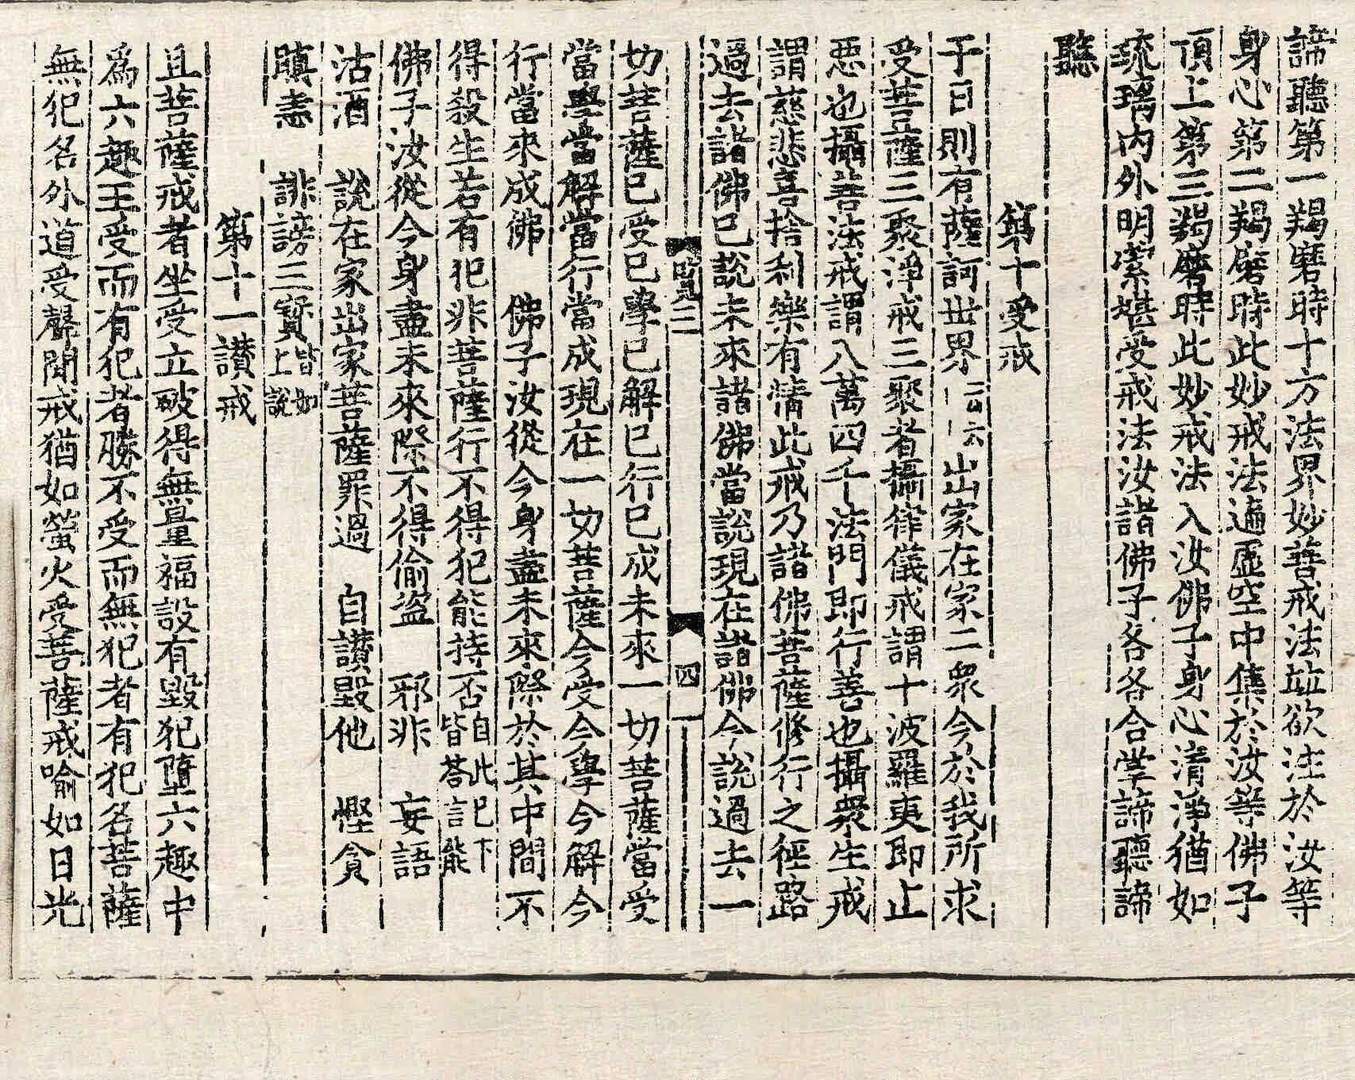 諦聽第一羯磨時十方法界妙善戒法竝欲注於汝等
身心第二羯磨時此妙戒法遍虛空中集於汝等佛子
頂上第三羯磨時此妙戒法入汝佛子身心清淨猶如
琉璃內外明㮣堪受戒法汝諸佛子各各合掌諦聽諦
聽
第十受戒
于日則有薩訶世界云云出家在家二衆今於我所求
受菩薩三聚淨戒三聚者攝律儀戒謂十波羅夷即止
惡也攝善法戒謂八萬四千法門即行善也攝衆生戒
謂慈悲喜捨利樂有情此戒乃諸佛菩薩修行之徑路
過去諸佛已說未來諸佛當說現在諸佛今說過去一
四
切菩薩已受已學已解已行已成未來一切菩薩當受
當學當解當行當成現在一切菩薩今受今學今解今
行當來成佛 佛子汝從今身盡未來際於其中間不
得殺生若有犯非菩薩行不得犯能持否自此已下皆答言能
佛子汝從今身盡未來際不得偷盜 邪非 妄語
沽酒 說在家出家菩薩罪過 自讃毀他 慳貪
瞋恚 誹謗三寶皆如上說
第十一讃戒
且菩薩戒者坐受立破得無量福設有毀犯墮六趣中
爲六趣王受而有犯者勝不受而無犯者有犯名菩薩
無犯名外道受聲聞戒猶如螢火受菩薩戒喻如日光